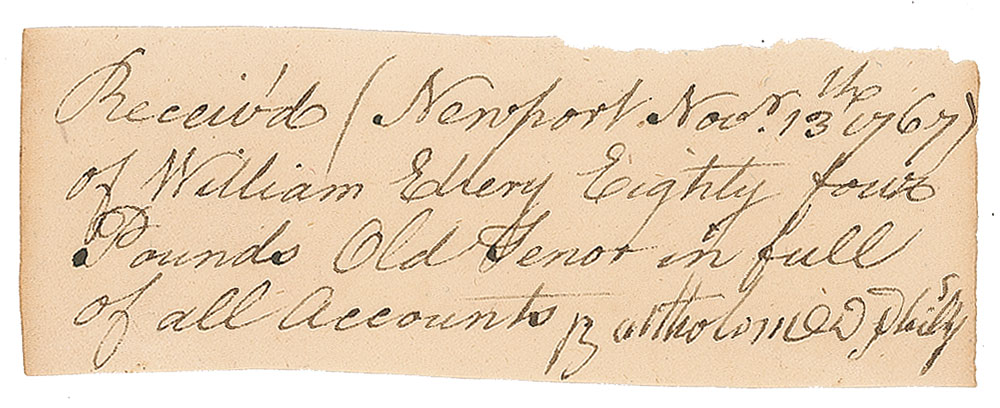 Receiv'd (Newport Novr. 13th 1767)
of William Ellery Eighty four
Pounds Old Tenor in full
of all Accounts